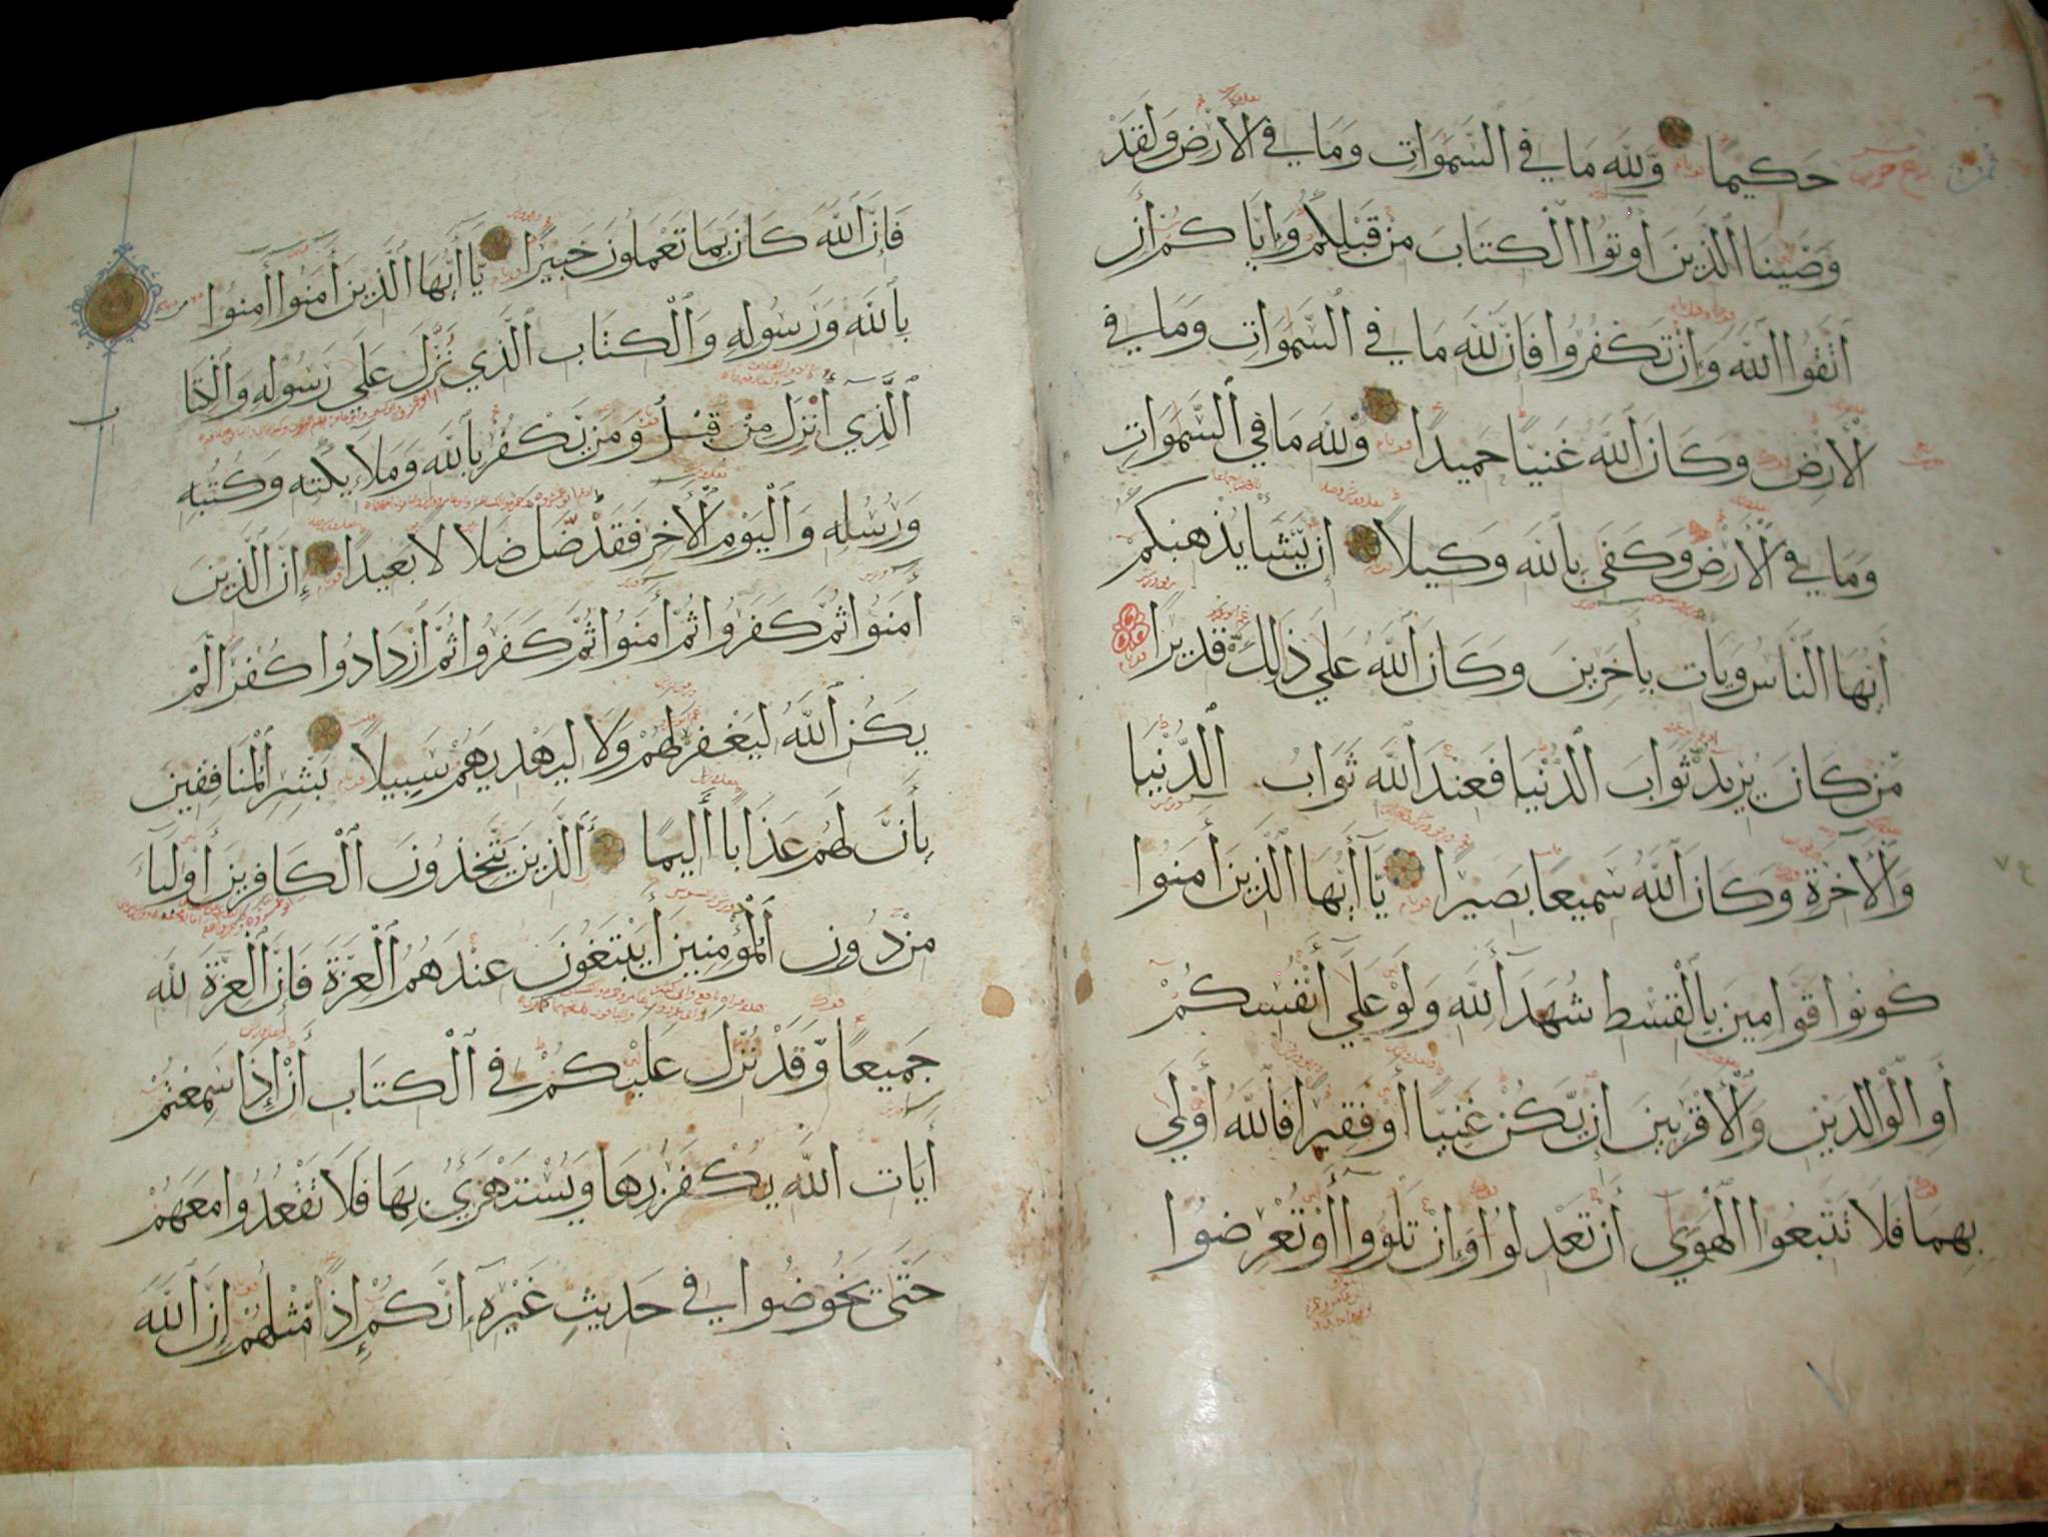 حَكِيمًا وَلِلَّهِ مَا فِي السَّمَوَاتِ وَمَا فِي الْأَرْضِ وَلَقَدْ
وَصَّيْنَا الَّذِينَ أُوتُوا الْكِتَابَ مِنْ قَبْلِكُمْ وَإِيَّاكُمْ أَنِ
اتَّقُوا اللَّهَ وَإِنْ تَكْفُرُوا فَإِنَّ لِلَّهِ مَا فِي السَّمَوَاتِ وَمَا فِي
الْأَرْضِ وَكَانَ اللَّهُ غَنِيًّا حَمِيدًا وَلِلَّهِ مَا فِي السَّمَوَاتِ
وَمَا فِي الْأَرْضِ وَكَفَى بِاللَّهِ وَكِيلًا إِنْ يَشَأْ يُذْهِبْكُمْ
أَيُّهَا النَّاسُ وَيَأْتِ بِآخَرِينَ وَكَانَ اللَّهُ عَلَى ذَلِكَ قَدِيرًا
مَّنْ كَانَ يُرِيدُ ثَوَابَ الدُّنْيَا فَعِنْدَ اللَّهِ ثَوَابُ الدُّنْيَا
وَالْآخِرَةِ وَكَانَ اللَّهُ سَمِيعًا بَصِيرًا يَا أَيُّهَا الَّذِينَ آمَنُوا
كُونُوا قَوَّامِينَ بِالْقِسْطِ شُهَدَاءَ لِلَّهِ وَلَوْ عَلَى أَنْفُسِكُمْ
أَوِ الْوَالِدَيْنِ وَالْأَقْرَبِينَ إِنْ يَكُنْ غَنِيًّا أَوْ فَقِيرًا فَاللَّهُ أَوْلَى
بِهِمَا فَلَا تَتَّبِعُوا الْهَوَى أَنْ تَعْدِلُوا وَإِنْ تَلْوُوا أَوْ تُعْرِضُوا
فَإِنَّ اللَّهَ كَانَ بِمَا تَعْمَلُونَ خَبِيرًا يَا أَيُّهَا الَّذِينَ آمَنُوا آمِنُوا
بِاللَّهِ وَرَسُولِهِ وَالْكِتَابِ الَّذِي نُزِّلَ عَلَى رَسُولِهِ وَالْكِتَابِ
الَّذِي أُنْزِلَ مِنْ قَبْلُ وَمَنْ يَكْفُرْ بِاللَّهِ وَمَلَائِكَتِهِ وَكُتُبِهِ
وَرُسُلِهِ وَالْيَوْمِ الْآخِرِ فَقَدْ ضَلَّ ضَلَالًا بَعِيدًا إِنَّ الَّذِينَ
آمَنُوا ثُمَّ كَفَرُوا ثُمَّ آمَنُوا ثُمَّ كَفَرُوا ثُمَّ ازْدَادُوا كُفْرًا لَّمْ
يَكُنِ اللَّهُ لِيَغْفِرَ لَهُمْ وَلَا لِيَهْدِيَهُمْ سَبِيلًا بَشِّرِ الْمُنَافِقِينَ
بِأَنَّ لَهُمْ عَذَابًا أَلِيمًا الَّذِينَ يَتَّخِذُونَ الْكَافِرِينَ أَوْلِيَاءَ
مِنْ دُونِ الْمُؤْمِنِينَ أَيَبْتَغُونَ عِنْدَهُمُ الْعِزَّةَ فَإِنَّ الْعِزَّةَ لِلَّهِ
جَمِيعًا وَقَدْ نُزِّلَ عَلَيْكُمْ فِي الْكِتَابِ أَنْ إِذَا سَمِعْتُمْ
آيَاتِ اللَّهِ يُكْفَرُ بِهَا وَيُسْتَهْزَئُ بِهَا فَلَا تَقْعُدُوا مَعَهُمْ
حَتَّى يَخُوضُوا فِي حَدِيثٍ غَيْرِهِ إِنَّكُمْ إِذًا مِّثْلُهُمْ إِنَّ اللَّهَ